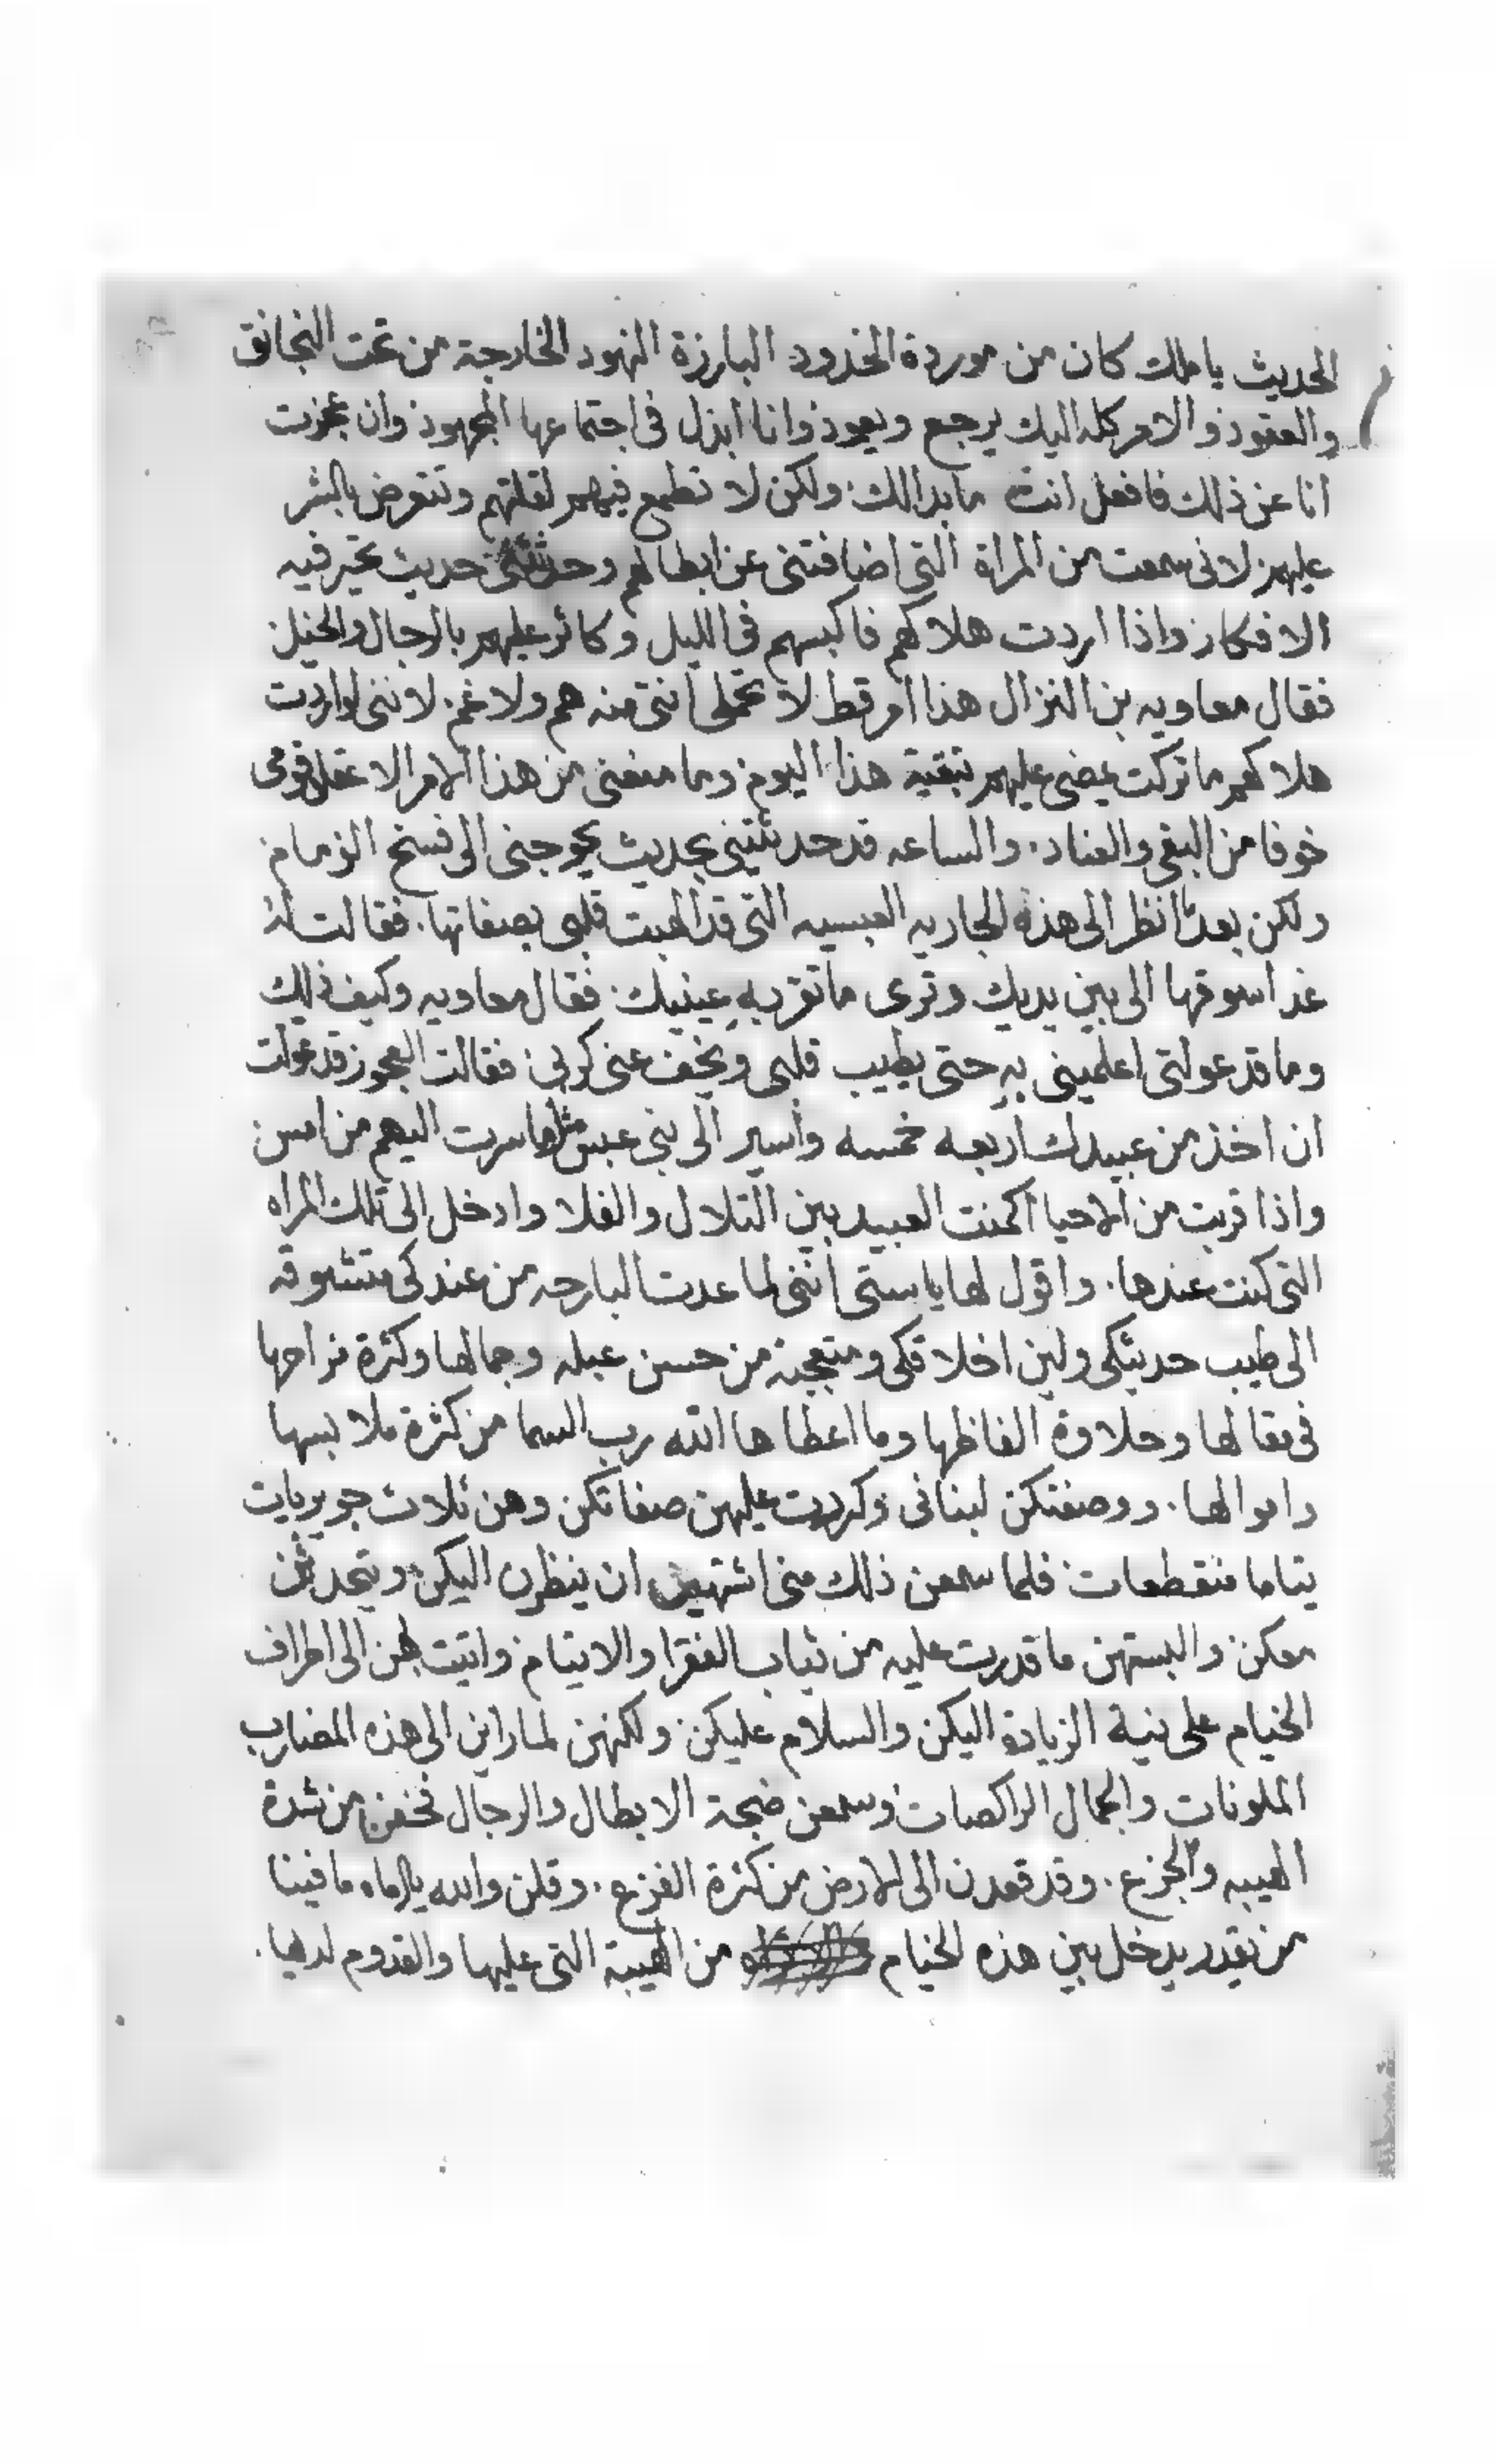 الحديث ياملك كان من موردة الخدود البارزة النهود الخارجة من تحت النجانق
والعقود والامر كله اليك يرجع ويعود وانا ابذل في اجتماعها المجهود وان عجزت
انا عن ذلك فافعل انت ما بدالك ولكن لا تطمع فيهم لقلتهم وتتعرض بالشر
عليهم لاني سمعت من المراة التي اضافتني عن ابطالهم وحدثتني حديث تحير فيه
الافكار واذا اردت هلاكهم فاكبسهم في الليل وكاثر عليهم بالرجال والخيل
فقال معاويه بن النزال هذا امر قط لا تحملي انتي منه هم ولا غم. لانني لو اردت
هلاكهم ما تركت يمضي عليهم بقية هذا اليوم وما منعني من هذا الامر الا عقل قومي
خوفا من البغي والعناد. والساعه قد حدثتيني بحديث يحوجني الى فسخ الزمام
ولكن بعد انظر الى هذه الجاريه العبسيه التي قد الهبت قلبي بصفاتها. فقالت له
غدا اسوقها الى بين يديك وترى ما تقر به عينيك. فقال معاويه وكيف ذلك
وما قد عولتي اعلميني به حتى يطيب قلبي ويخف عني كربي فقالت العجوز قد عولت
ان اخذ من عبيدك اربعه خمسه واسير الى بني عبس مثلما سرت اليهم من امس
واذا قربت من الاحيا اكمنت العبيد بين التلال والفلا وادخل الى تلك المراه
التي كنت عندها. واقول لها ياستي انني لما عدت البارحه من عندكي متشوقه
الى طيب حديثكي ولين اخلاقكي ومتعجبة من حسن عبله وجمالها وكثرة مزاحها
في مقالها وحلاوة الفاظها وما اعطاها الله رب السما من كثرة ملابسها
واموالها. ووصفتكن لبناتي وكررت عليهن صفاتكن وهن ثلاث جويريات
يتاما منقطعات فلما سمعن ذلك مني اشتهين ان ينظرن اليكن ويتحدثن
معكن والبستهن ما قدرت عليه من ثياب الفقرا والايتام واتيت بهن الى اطراف
الخيام على نية الزيادة اليكن والسلام عليكن ولكنهن لما راين الى هذه المضارب
الملونات والجمال الراكضات وسمعن ضجة الابطال والرجال فخفن من شدة
الهيبه والجزع. وقد قعدن الى الارض من كثرة الفزع. وقلن والله يااماه ما فينا
من يقدر يدخل بين هذه الخيام من الهيبة التي عليها والقدوم لديها.